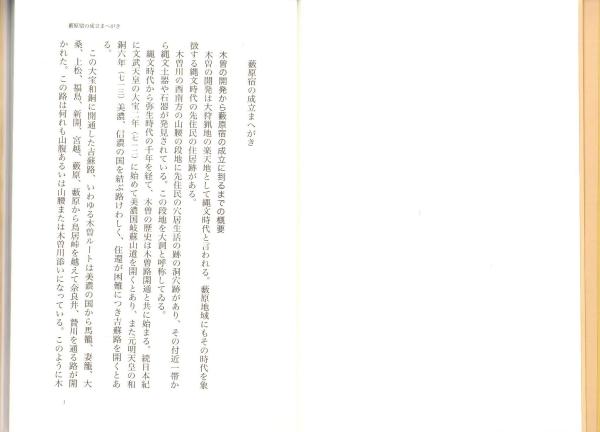 藪原宿の成立まへがき
藪原宿の成立まへがき
木曽の開発から藪原宿の成立に到るまでの概要
木曽の開発は大狩猟地の楽天地として縄文時代と言われる。藪原地域にもその時代を象
徴する縄文時代の先住民の住居跡がある。
木曽川の西南方の山腰の段地に先住民の穴居生活の跡の洞穴跡があり、その付近一帯か
ら縄文土器や石器が発見されている。この段地を大洞と呼称してゐる。
縄文時代から弥生時代の千年を経て、木曽の歴史は木曽路開通と共に始まる。続日本紀
に文武天皇の大宝二年（七〇二）に始めて美濃国岐蘇山道を開くとあり、また元明天皇の和
銅六年（七一三）美濃、信濃の国を結ぶ路けわしく、往還が困難につき吉蘇路を開くとあ
る。
この大宝和銅に開通した吉蘇路、いわゆる木曽ルートは美濃の国から馬籠、妻籠、大
桑、上松、福島、新開、宮越、藪原、藪原から鳥居峠を越えて奈良井、贄川を通る路が開
かれた。この路は何れも山腹あるいは山腰または木曽川添いになっている。このように木
1